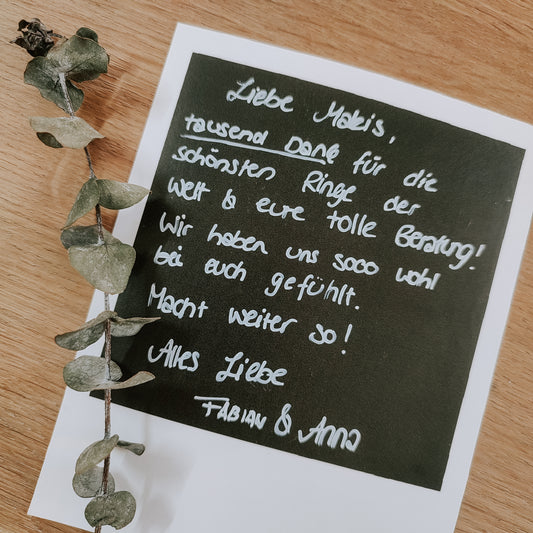 Liebe Makis,
tausend Dank für die
schönsten Ringe der
Welt & eure tolle Beratung!
Wir haben uns sooo wohl
bei euch gefühlt.
Macht weiter so!
Alles Liebe
FABIAN & Anna